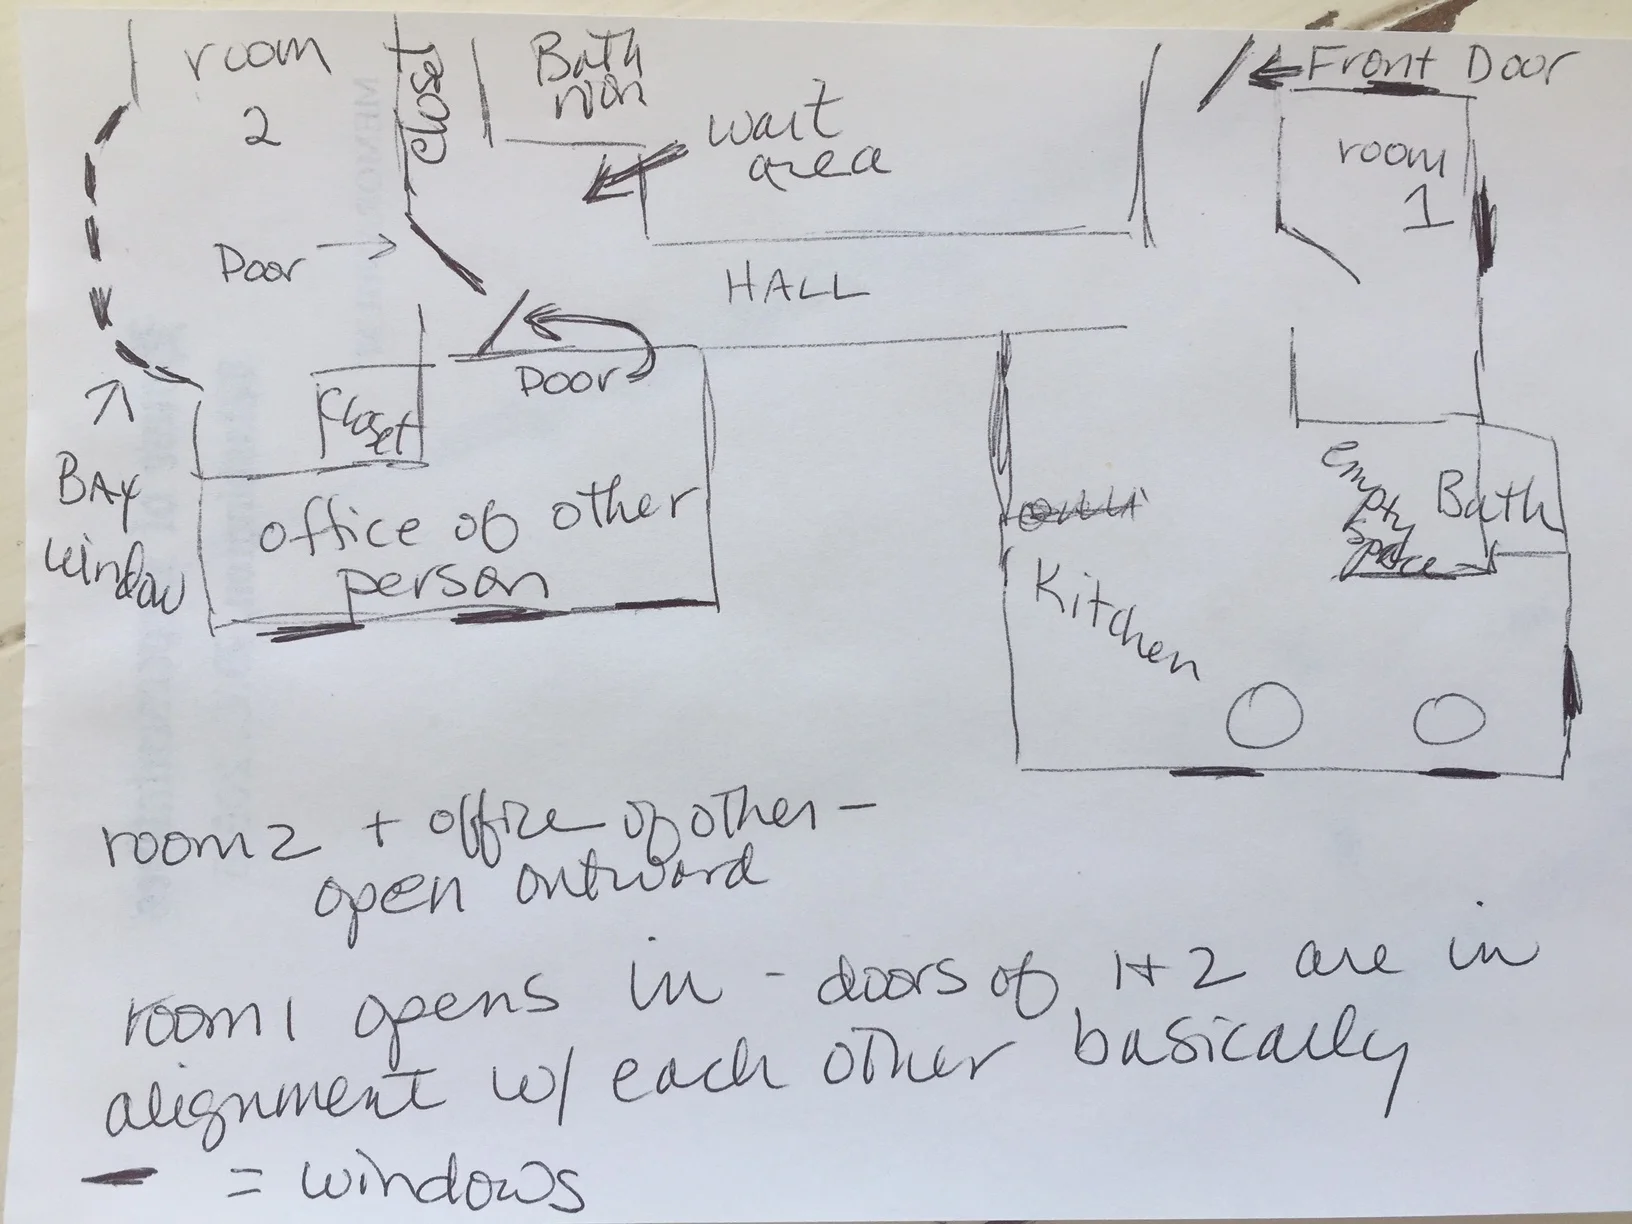 room
2
closet
Bath
room
wait
area
Front Door
room
1
Door
HALL
Door
closet
BAY
window
office of other
person
empty
space
Bath
Kitchen
room 2 + office of other -
open outward
room 1 opens in - doors of 1+2 are in
alignment w/ each other basically
= windows